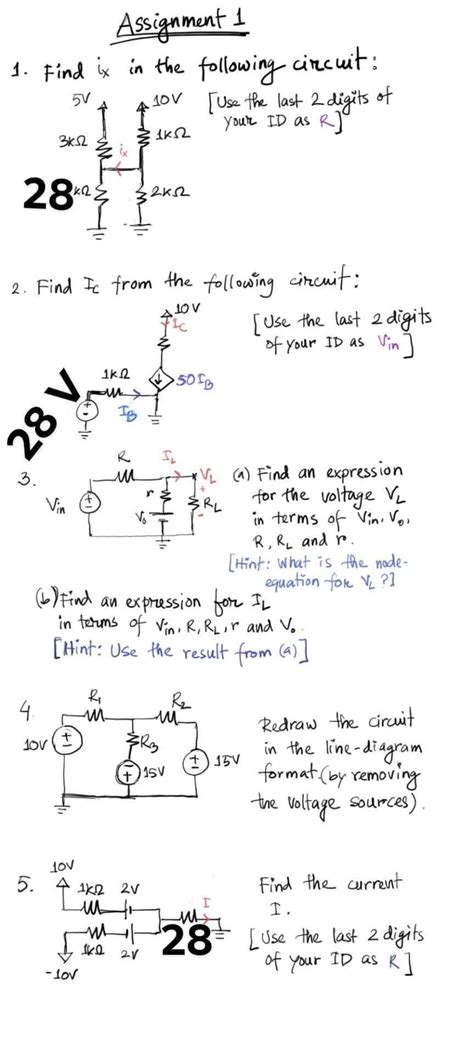 Assignment 1
1. Find ix in the following circuit:
5V
10V
[Use the last 2 digits of
your ID as R]
3kΩ
1kΩ
ix
28 kΩ
2kΩ
2. Find Ic from the following circuit:
10V
Ic
[Use the last 2 digits
of your ID as Vin]
1kΩ
50IB
28 V
IB
3.
R
IL
VL
Vin
r
V₀
RL
+
-
(a) Find an expression
for the voltage VL
in terms of Vin, V₀,
R, RL and r.
[Hint: What is the node-
equation for VL?]
(b) Find an expression for IL
in terms of Vin, R, RL, r and V₀.
[Hint: Use the result from (a)]
4.
R₁
R₂
10V
R₃
15V
15V
Redraw the circuit
in the line-diagram
format (by removing
the voltage sources).
5.
10V
1kΩ 2V
I
28
1kΩ 2V
-10V
Find the current
I.
[Use the last 2 digits
of your ID as R]